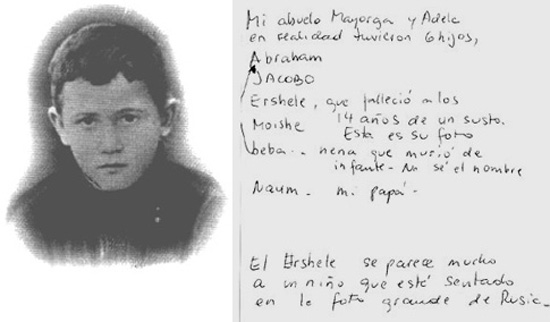 Mi abuelo Mayorga y Adela
en realidad tuvieron 6 hijos,
Abraham
JACOBO
Ershele, que falleció a los
Moishe 14 años de un susto.
Esta es su foto
beba... nena que murió de
infante - No sé el nombre
Naum - mi papá -
El Ershele se parece mucho
a un niño que esté sentado
en la foto grande de Rusia -